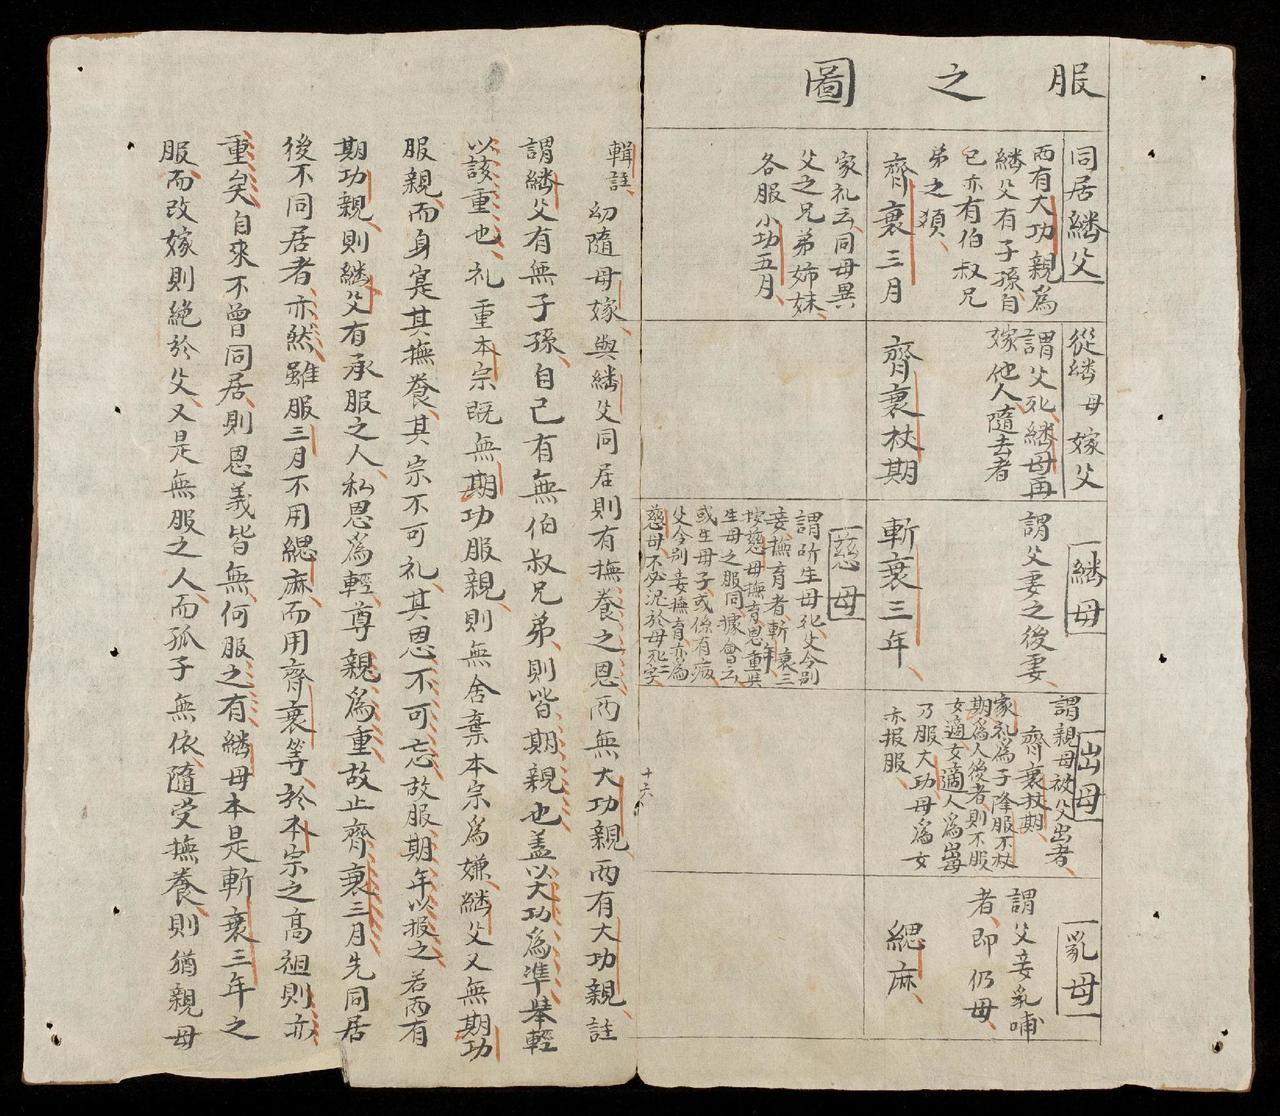 服之圖
同居繼父
兩有大功親爲
繼父有子孫自
己亦有伯叔兄
弟之類
齊衰三月
家礼云同母異
父之兄弟姉妹
各服小功五月
從繼母嫁父
謂父死繼母再
嫁他人隨去者
齊衰杖期
繼母
謂父妻之後妻
斬衰三年
慈母
謂所生母死父令別
妾撫育者斬衰三年
按慈母撫育恩重與
生母之服同據會云
或生母子或係有病
父令別妾撫育亦為
慈母不必泥於母死二字
出母
謂親母被父出者
齊衰杖期
家礼為子降服不杖
期為人後者則不服
女適女適人為出母
乃服大功母為女
亦报服
乳母
謂父妾乳哺
者即仍母
緦麻
十六
輯註
幼隨母嫁與繼父同居則有撫養之恩兩無大功親兩有大功親註
謂繼父有無子孫自己有無伯叔兄弟則皆期親也盖以大功為準舉輕
以該重也礼重本宗既無期功服親則無舍棄本宗為嫌繼父又無期功
服親而身寔其撫養其宗不可礼其恩不可忘故服期年以报之若兩有
期功親則繼父有承服之人私恩爲輕尊親爲重故止齊衰三月先同居
後不同居者亦然雖服三月不用緦麻而用齊衰等於本宗之高祖則亦
重矣自來不曾同居則恩義皆無何服之有繼母本是斬衰三年之
服而改嫁則絶於父又是無服之人而孤子無依隨受撫養則猶親母